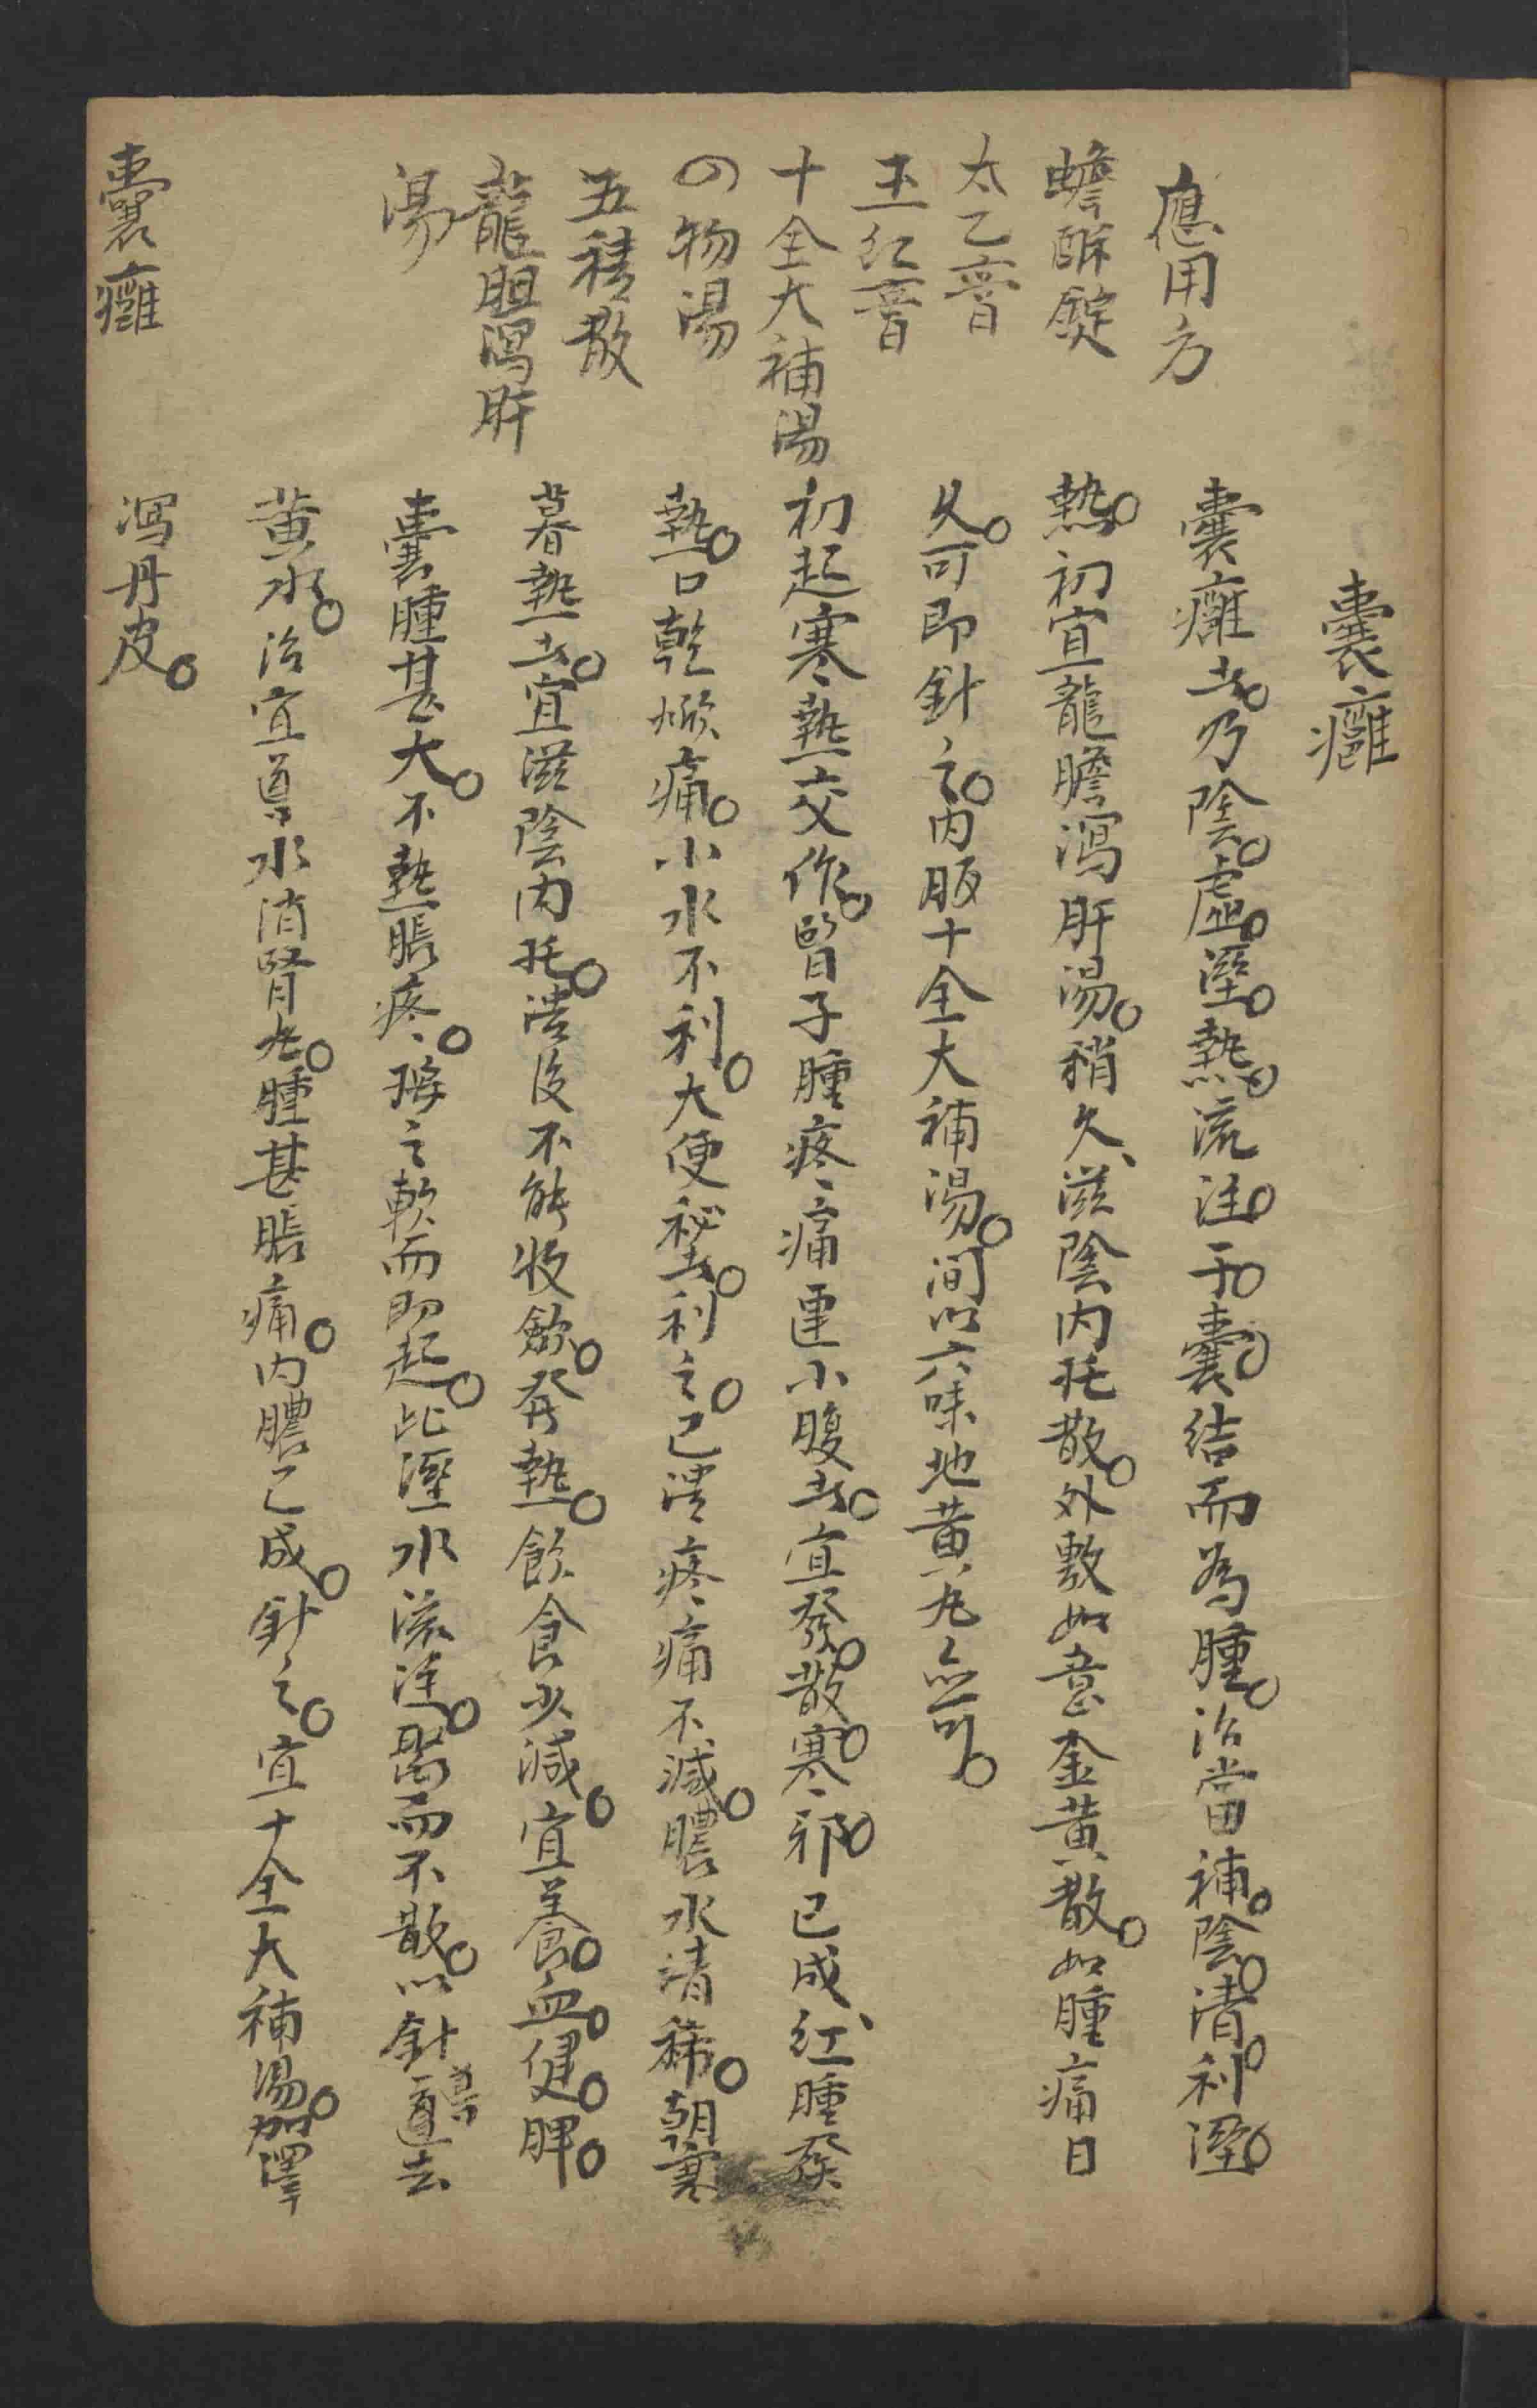 囊癰
囊癰者。乃陰。虛。溼。熱。流注。于。囊。結而為腫。治當補。陰。清。利溼。
熱。初宜龍膽瀉肝湯。稍久、滋陰內托散。外敷如意金黃散。如腫痛日
久。可即針之。內服十全大補湯。間以六味地黃丸亦可。
初起寒熱交作。腎子腫疼痛連小腹者。宜發。散。寒。邪。已成、紅腫發
熱。口乾㾨痛。小水不利。大便秘者。利之。已潰疼痛不減。膿水清稀。朝寒
暮熱者。宜滋陰內托。潰後不能收斂。發熱。飲食少減。宜養。血。健。脾。
囊腫甚大。不熱脹疼。按之軟而即起。此溼水流注。聚而不散。以針導去
黃水。治宜導水消腎丸。腫甚脹痛。內膿已成。針之。宜十全大補湯。加澤
瀉丹皮。
應用方
蟾酥錠
太乙膏
玉紅膏
十全大補湯
四物湯
五積散
龍胆瀉肝
湯
囊癰